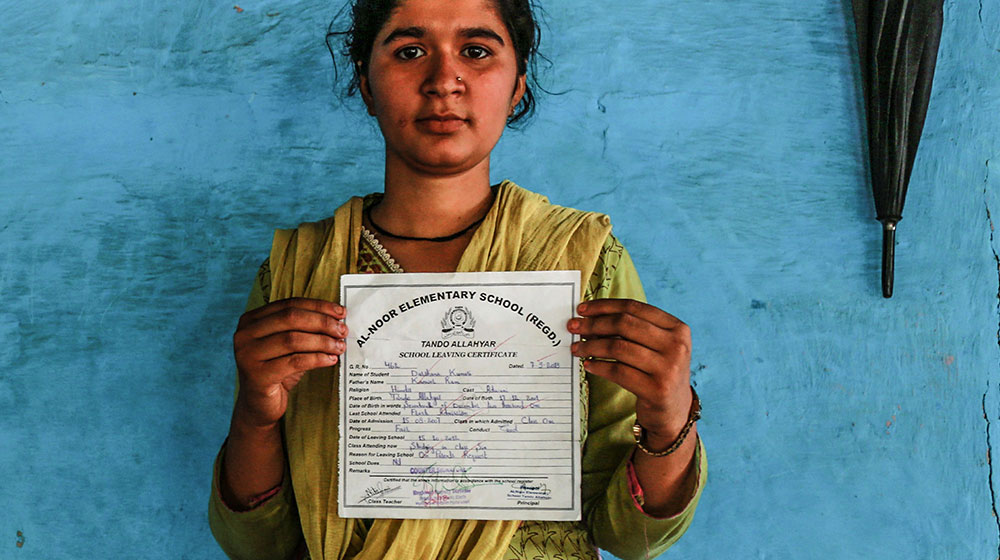 AL-NOOR ELEMENTARY SCHOOL (REGD.)
TANDO ALLAHYAR
SCHOOL LEAVING CERTIFICATE
G. R. No 462 Dated 7-3-2013
Name of Student
Father's Name
Religion Hindu Cast
Place of Birth Tando Allahyar Date of Birth 17.12.2001
Date of Birth in words Seventeenth of December two thousand one
Last School Attended Fresh Admission
Date of Admission 15.03.2007 Class in which Admitted Class One
Progress Fair Conduct Good
Date of Leaving School
Class Attending now Studying in class Six
Reason for Leaving School On Parents Request
School Dues Nil
Remarks
Certified that the above information in accordance with the school register
Class Teacher
Principal
Principal